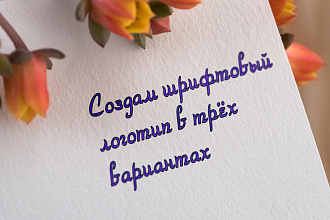 Создам шрифтовый
логотип в трёх
вариантах